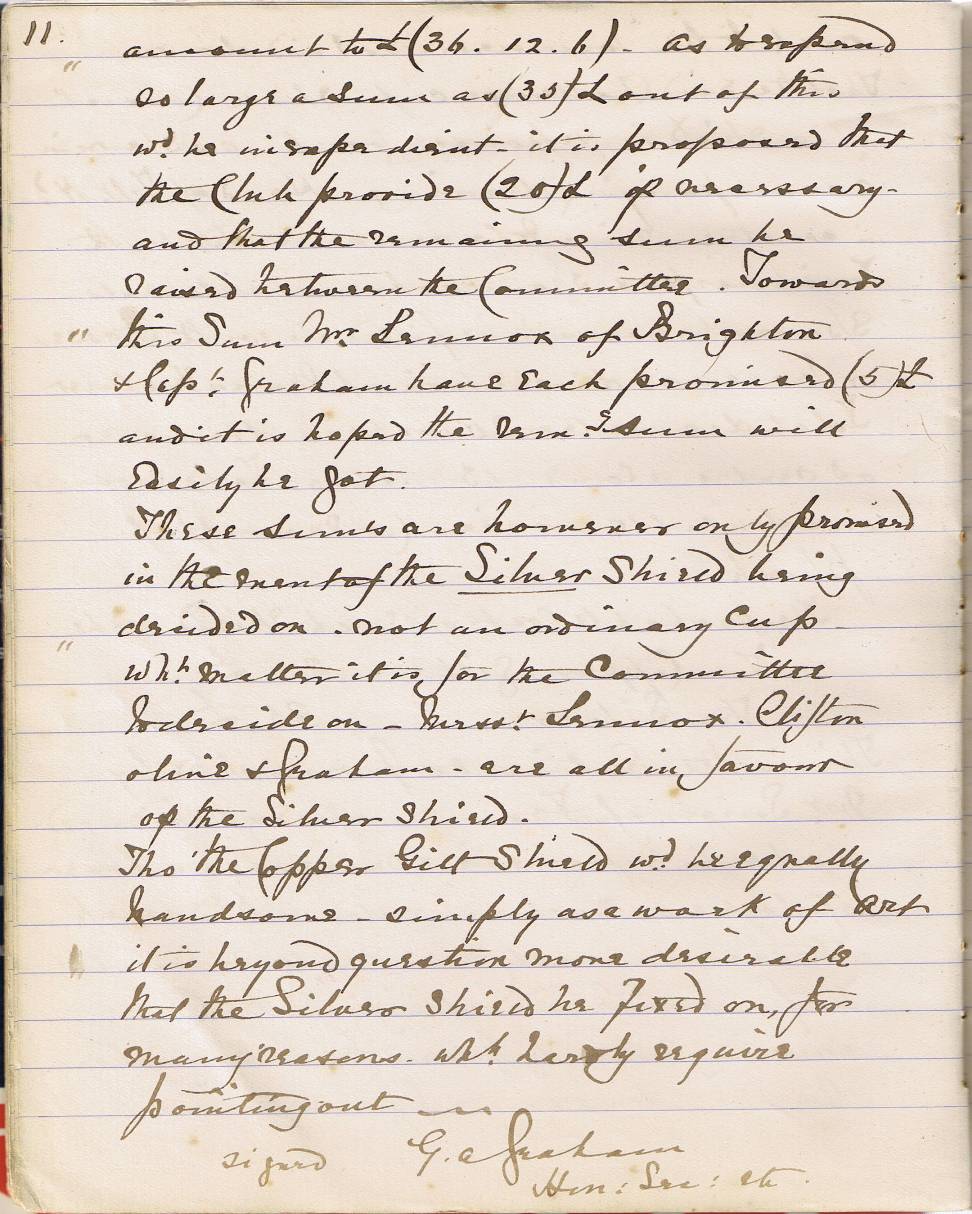 11.
amount to £(36. 12. 6) - As to expend
so large a sum as (35)£ out of this
wd. be inexpedient - it is proposed that
the Club provide (20)£ if necessary -
and that the remaining sum be
raised between the Committee. Towards
this Sum Mr. Lennox of Brighton
& Capt. Graham have Each promised (5)£
and it is hoped the remg. sum will
Easily be got.
These sums are however only promised
in the event of the Silver Shield being
decided on - not an ordinary Cup
whh. matter it is for the Committee
to decide on - Messrs. Lennox. Clifton
& Graham - are all in favour
of the Silver Shield.
Tho' the Copper Gilt Shield wd. be equally
handsome - simply as a work of Art
it is beyond question more desirable
that the Silver Shield be fixed on, for
many reasons - whh. hardly require
pointing out
signed G. A Graham
Hon: Sec: